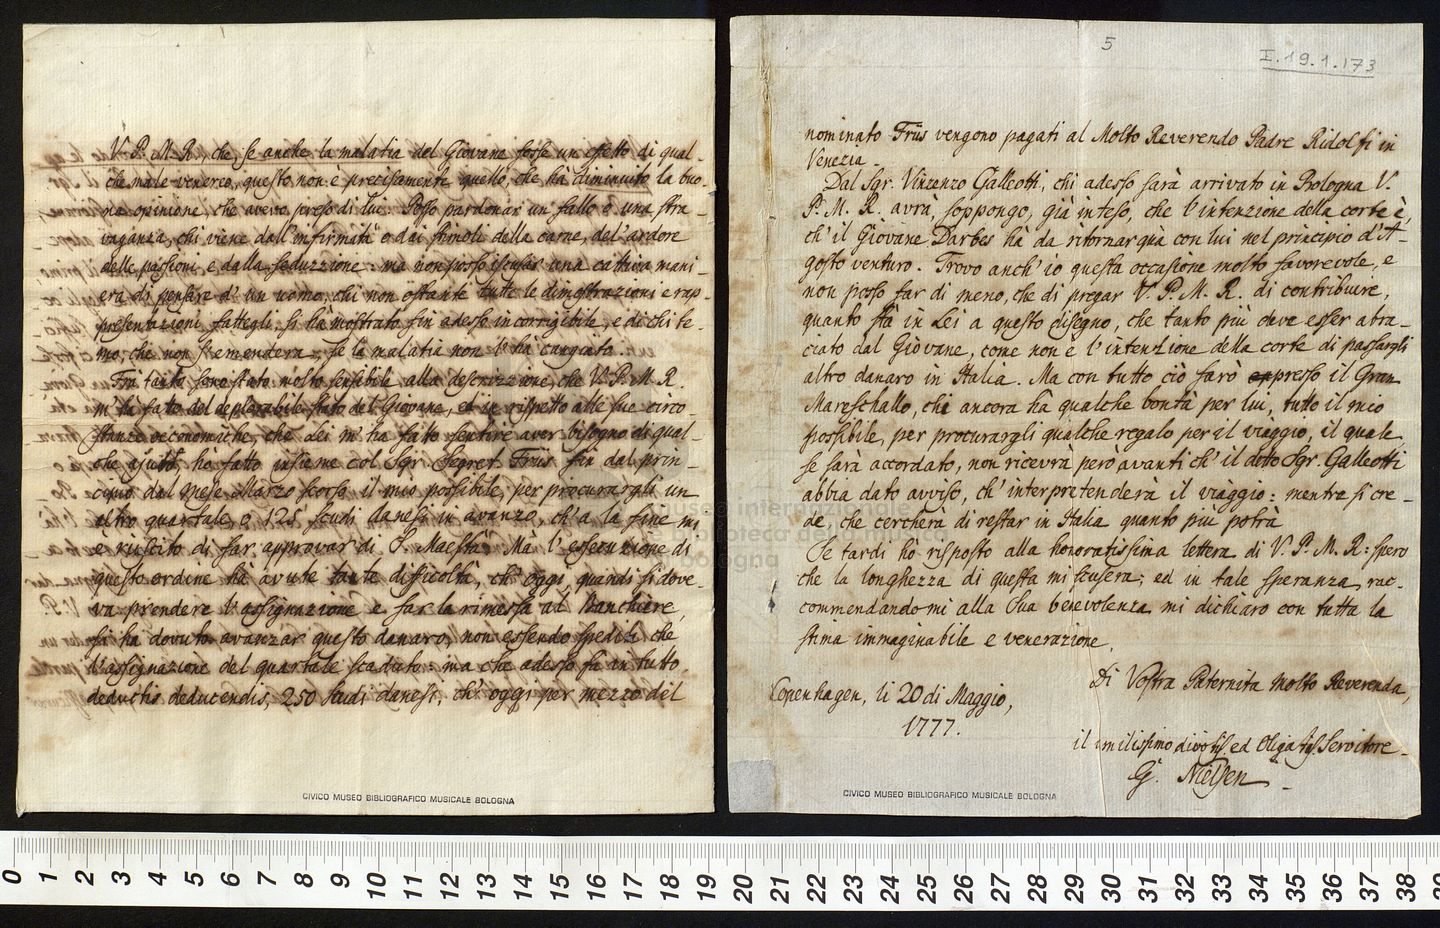 V. P. M. R., che, se anche la malatia del Giovane fosse un effetto di qual-
che male venereo, questo non è precisamente quello, che hà diminuito la buo-
na opinione, che avevo preso di lui. Posso pardonar un fallo o una stra-
vaganza, chi viene dall'infirmità o dai stimoli della carne, del'ardore
delle passioni e dalla seduzzione: ma non posso iscusar una cattiva mani-
era di pensare d'un uomo, chi non ostante tutte le dimostrazioni e rap-
presentazioni fattegli, si hà mostrato fin adesso incorrigibile, e di chi te-
mo, che non s'emenderà, se la malatia non l'hà cangiato.
Fra tanto sono stato molto sensibile alla descrizzione, che V. P. M. R.
m'hà fato del deplorabile stato del Giovane, ed in rispetto alle sue circo-
stanze oeconomiche, che Lei m'ha fatto sentire aver bisogno di qual-
che ajuto, hò fatto insieme col Sgr. Segret. Friis fin dal prin-
cipio dal mese Marzo scorso il mio possibile, per procurargli un
altro quartale, o 125 scudi danesi in avanzo, ch'a la fine mi
è riuscito di far approvar di S. Maestà. Mà l'essecuzione di
questo ordine hà avute tante difficoltà, ch'oggi, quandi si dove-
va prendere l'assignazione e far la rimessa al Banchiere,
si hà dovuto avanzar questo danaro, non essendo spediti che
l'assignazione del quartale scaduto: ma che adesso fà in tutto
deductis deducendis, 250 scudi danesi, ch'oggi per mezzo del
5
I.19.1.173
nominato Friis vengono pagati al Molto Reverendo Padre Ridolfi in
Venezia.
Dal Sgr. Vinzenzo Galleotti, chi adesso sarà arrivato in Bologna V.
P. M. R. avrà, soppongo, già inteso, che l'intenzione della corte è,
ch'il Giovane Darbes hà da ritornar quà con lui nel principio d'A-
gosto venturo. Trovo anch'io questa occasione molto favorevole, e
non posso far di meno, che di pregar V. P. M. R. di contribuire,
quanto stà in Lei a questo disegno, che tanto più deve esser abra-
ciato dal Giovane, come non è l'intenzione della corte di passargli
altro danaro in Italia. Ma con tutto ciò farò appresso il Gran
Mareschallo, chi ancora hà qualche bontà per lui, tutto il mio
possibile, per procurargli qualche regalo per il viaggio, il quale
se sarà accordato, non riceverà però avanti ch'il detto Sgr. Galleotti
abbia dato avviso, ch'interpretenderà il viaggio: mentre si cre-
de, che cercherà di restar in Italia quanto più potrà
Se tardi hò risposto alla honoratissima lettera di V. P. M. R: spero
che la longhezza di questa mi scuserà; ed in tale speranza, rac-
commendandomi alla Sua benevolenza mi dichiaro con tutta la
stima immaginabile e venerazione.
Di Vostra Paternita Molto Reverenda,
Copenhagen, li 20 di Maggio,
1777.
il umilissimo divotis. ed Obligatis. Servitore
G. Nielsen
CIVICO MUSEO BIBLIOGRAFICO MUSICALE BOLOGNA
CIVICO MUSEO BIBLIOGRAFICO MUSICALE BOLOGNA
museo internazionale
e biblioteca della musica
bologna
0 1 2 3 4 5 6 7 8 9 10 11 12 13 14 15 16 17 18 19 20 21 22 23 24 25 26 27 28 29 30 31 32 33 34 35 36 37 38